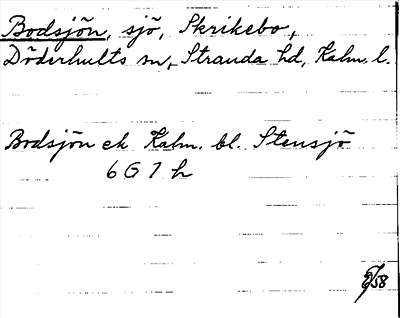 Bodsjön, sjö, Skrikebo,
Döderhults sn, Stranda hd, Kalm. l.
Bodsjön ek Kalm. bl. Stensjö
6 G 7 h
/58